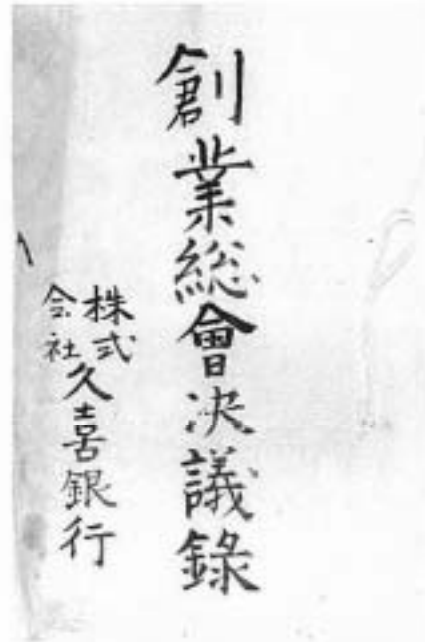 創業総會決議錄
株式会社久喜銀行